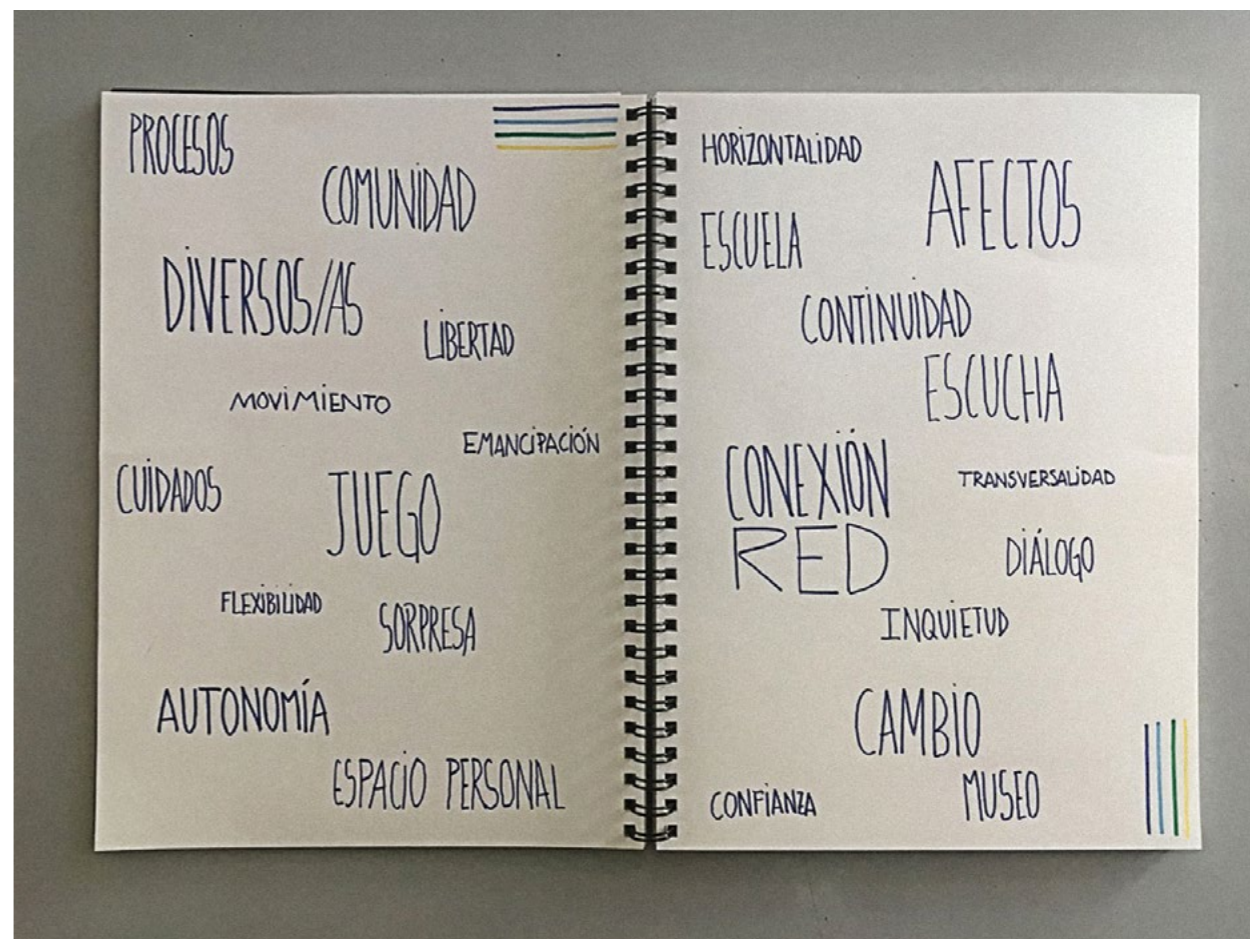 PROCESOS
COMUNIDAD
DIVERSOS/AS
LIBERTAD
MOVIMIENTO
EMANCIPACIÓN
CUIDADOS
JUEGO
FLEXIBILIDAD
SORPRESA
AUTONOMÍA
ESPACIO PERSONAL
HORIZONTALIDAD
AFECTOS
ESCUELA
CONTINUIDAD
ESCUCHA
CONEXIÓN
TRANSVERSALIDAD
RED
DIÁLOGO
INQUIETUD
CAMBIO
CONFIANZA
MUSEO